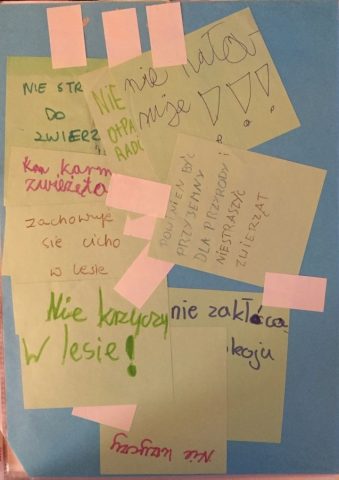 NIE STR
DO
ZWIERZ
NIE
nie hałas-
uje !!!
karm
zwierzęta
zachowuje
się cicho
w lesie
POWINIEN BYĆ
PRZYJEMNY
DLA PRZYRODY I
NIESTRASZYĆ
ZWIERZĄT
Nie krzyczy
W lesie!
nie zakłóca
okoju
Nie krzyczy